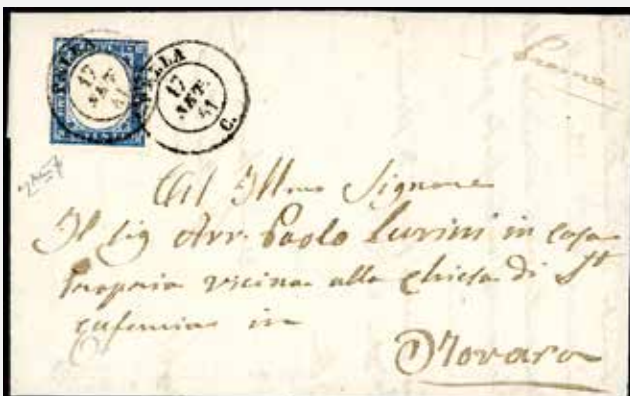 VILLA
17
SET.
61
VILLA
17
SET.
61
C.
All Illmo Signore
Il Sig Avv. Paolo Lurini in casa
propria vicina alla chiesa di St
eufemia in
Novara